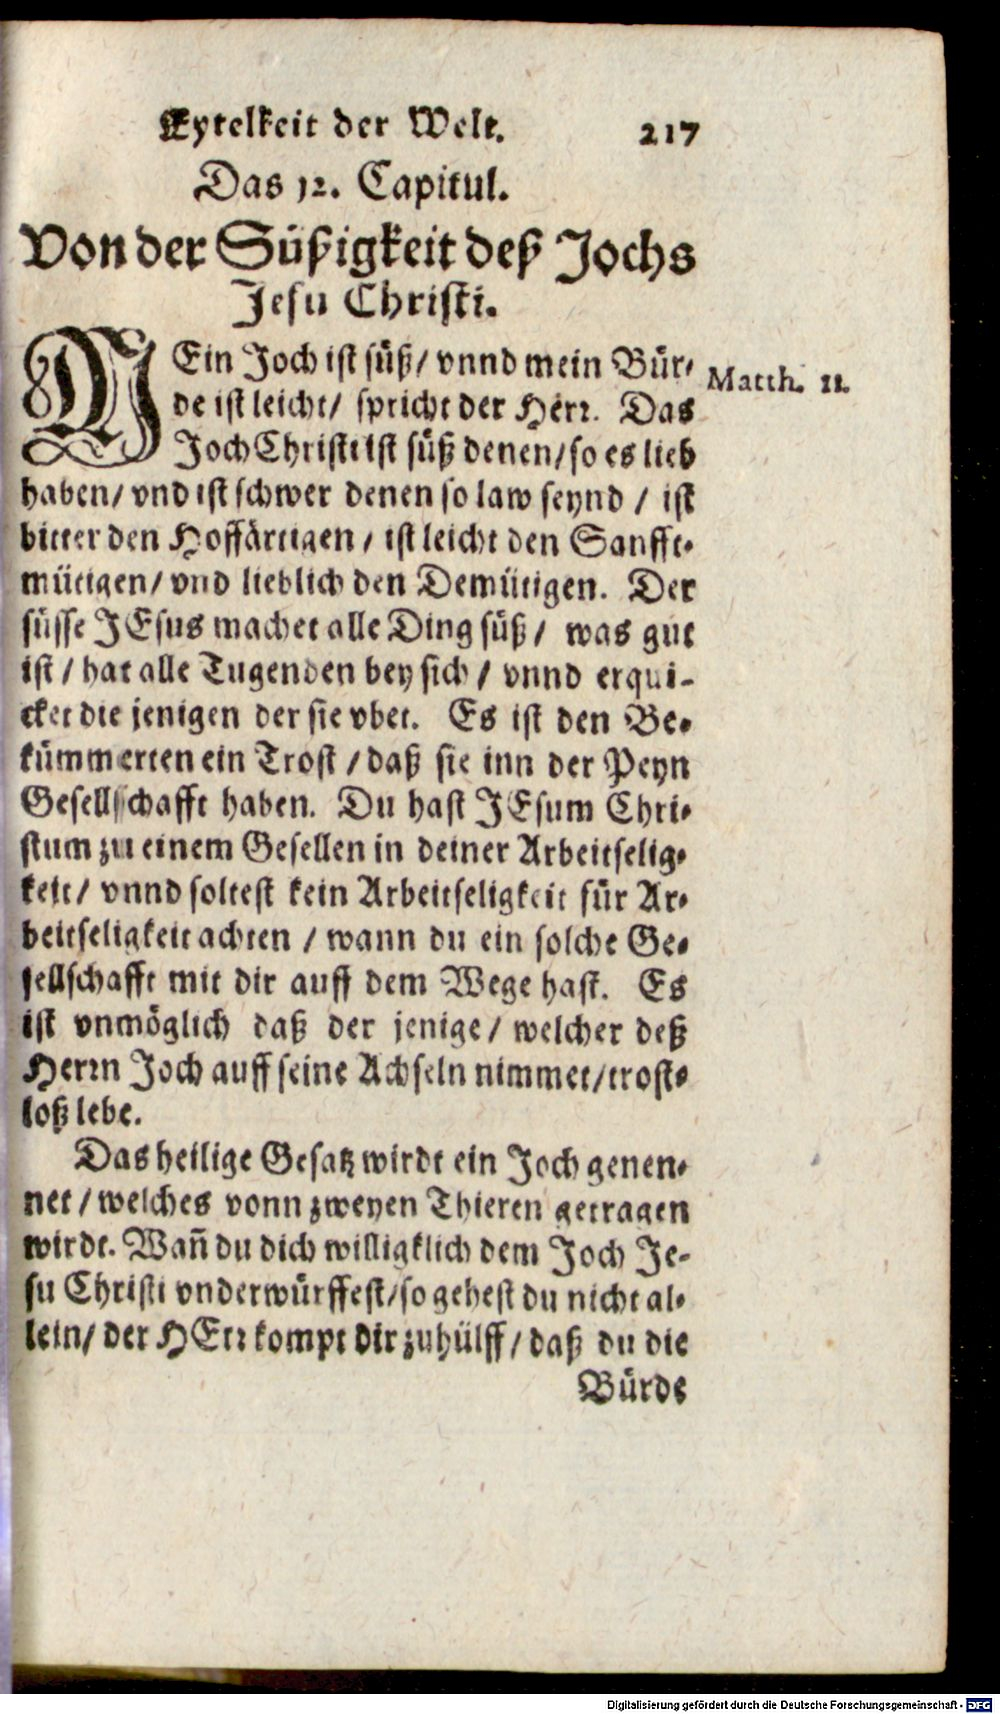 Eytelkeit der Welt. 217
Das 12. Capitul.
Von der Süßigkeit deß Jochs
Jesu Christi.
MEin Joch ist süß/ vnnd mein Bür-
Matth. 11.
de ist leicht/ spricht der Herr. Das
Joch Christi ist süß denen/ so es lieb
haben/ vnd ist schwer denen so law seynd / ist
bitter den Hoffärtigen / ist leicht den Sanfft-
mütigen/ vnd lieblich den Demütigen. Der
süsse JEsus machet alle Ding süß/ was gut
ist / hat alle Tugenden bey sich / vnnd erqui-
cket die jenigen der sie vbet. Es ist den Be-
kümmerten ein Trost / daß sie inn der Peyn
Gesellschafft haben. Du hast JEsum Chri-
stum zu einem Gesellen in deiner Arbeitselig-
keit/ vnnd soltest kein Arbeitseligkeit für Ar-
beitseligkeit achten / wann du ein solche Ge-
sellschafft mit dir auff dem Wege hast. Es
ist vnmöglich daß der jenige / welcher deß
Herrn Joch auff seine Achseln nimmet/ trost-
loß lebe.
Das heilige Gesatz wirdt ein Joch genen-
net / welches vonn zweyen Thieren getragen
wirdt. Wañ du dich willigklich dem Joch Je-
su Christi vnderwürffest/ so gehest du nicht al-
lein/ der HErr kompt dir zuhülff / daß du die
Bürde
Digitalisierung gefördert durch die Deutsche Forschungsgemeinschaft - DFG